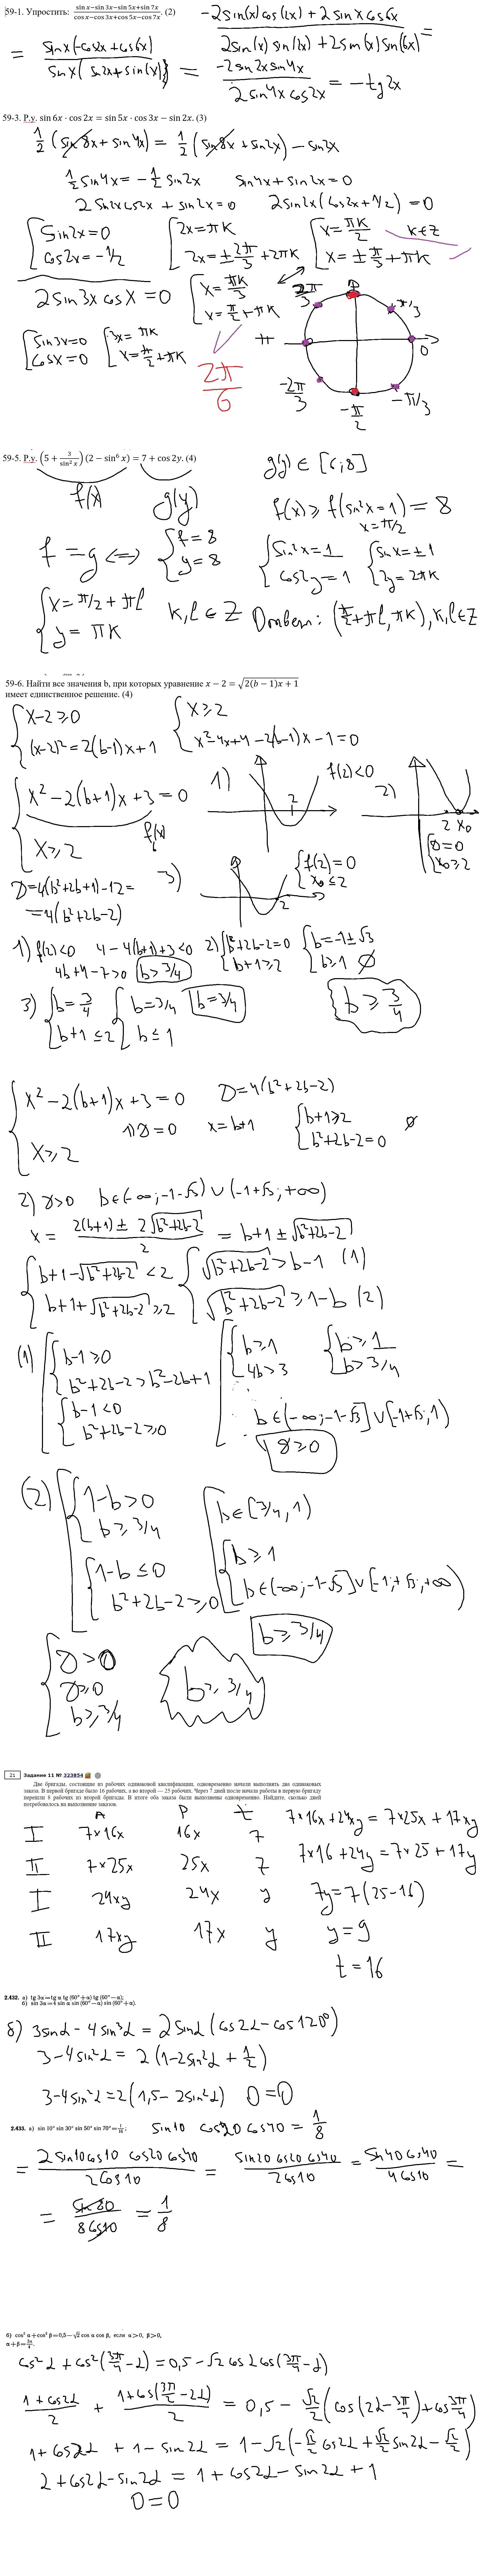 59-1. Упростить: (sin x−sin 3x−sin 5x+sin 7x)/(cos x−cos 3x+cos 5x−cos 7x). (2)
(-2sin(x)cos(2x) + 2sinx cos6x)/(2sin(x)sin(2x) + 2sin(x)sin(6x)) =
= = (-2sin2x sin4x)/(2sin4x cos2x) = -tg2x
59-3. Р.у. sin 6x · cos 2x = sin 5x · cos 3x − sin 2x. (3)
1/2 (sin8x + sin4x) = 1/2 (sin8x + sin2x) − sin2x
1/2 sin4x = −1/2 sin2x sin4x + sin2x = 0
2sin2xcos2x + sin2x = 0 2sin2x(cos2x + 1/2) = 0
sin2x = 0 2x = πk x = πk/2 k∈Z
cos2x = −1/2 2x = ± 2π/3 + 2πk x = ± π/3 + πk
2 sin3x cosx = 0 x = πk/3
x = π/2 + πk
sin3x = 0 3x = πk
cosx = 0 x = π/2 + πk
2π/6
π/3 π 0 −2π/3 −π/2 −π/3
59-5. Р.у. (5 + 3/sin² x)(2 − sin⁶ x) = 7 + cos 2y. (4)
f(x) g(y) g(y) ∈ [6; 8]
f(x) ≥ f(sin²x = 1) = 8
x = π/2
f = g <=> f = 8 sin²x = 1 sinx = ±1
g = 8 cos2y = 1 2y = 2πk
x = π/2 + πl k, l ∈ Z Ответ: (π/2 + πl, πk), k, l ∈ Z
y = πk
59-6. Найти все значения b, при которых уравнение x − 2 = √(2(b − 1)x + 1)
имеет единственное решение. (4)
x−2 ≥ 0 x ≥ 2
(x−2)² = 2(b−1)x + 1 x² − 4x + 4 − 2(b−1)x − 1 = 0
x² − 2(b+1)x + 3 = 0 1) f(2) < 0 2)
f(x) 2 2 x₀
x ≥ 2 D = 0
x₀ ≥ 2
D = 4(b² + 2b + 1) − 12 = 3) f(2) = 0
= 4(b² + 2b − 2) x₀ ≤ 2
2
1) f(2) < 0 4 − 4(b+1) + 3 < 0 2) b² + 2b − 2 = 0 b = −1 ± √3
b > 3/4 b + 1 ≥ 2 b ≥ 1 ∅
3) b = 3/4 b = 3/4 b = 3/4 b ≥ 3/4
b + 1 ≤ 2 b ≤ 1
x² − 2(b+1)x + 3 = 0 D = 4(b² + 2b − 2)
1) D = 0 x = b+1 b + 1 ≥ 2 ∅
x ≥ 2 b² + 2b − 2 = 0
2) D > 0 b ∈ (−∞; −1−√3) ∪ (−1+√3; +∞)
x = (2(b+1) ± 2√(b²+2b−2))/2 = b + 1 ± √(b²+2b−2)
b+1−√(b²+2b−2) < 2 √(b²+2b−2) > b−1 (1)
b+1+√(b²+2b−2) ≥ 2 √(b²+2b−2) ≥ 1−b (2)
(1) b−1 ≥ 0 b ≥ 1 b ≥ 1
b²+2b−2 > b²−2b+1 4b > 3 b > 3/4
b−1 < 0
b²+2b−2 ≥ 0 b ∈ (−∞; −1−√3] ∪ [−1+√3; 1)
D ≥ 0
(2) 1−b > 0 b ∈ [3/4, 1)
b ≥ 3/4
1−b ≤ 0 b ≥ 1
b²+2b−2 ≥ 0 b ∈ (−∞; −1−√3] ∪ [−1+√3, +∞)
b ≥ 3/4
D > 0
D ≥ 0 b ≥ 3/4
b ≥ 3/4
21 Задание 11 № 323854
Две бригады, состоящие из рабочих одинаковой квалификации, одновременно начали выполнять два одинаковых
заказа. В первой бригаде было 16 рабочих, а во второй — 25 рабочих. Через 7 дней после начала работы в первую бригаду
перешли 8 рабочих из второй бригады. В итоге оба заказа были выполнены одновременно. Найдите, сколько дней
потребовалось на выполнение заказов.
A P t 7*16x + 24xy = 7*25x + 17xy
I 7*16x 16x 7
II 7*25x 25x 7 7*16 + 24y = 7*25 + 17y
I 24xy 24x y 7y = 7(25−16)
II 17xy 17x y y = 9
t = 16
2.432. а) tg 3α = tg α tg (60° + α) tg (60° − α);
б) sin 3α = 4 sin α sin (60° − α) sin (60° + α).
б) 3sinα − 4sin³α = 2sinα(cos2α − cos120°)
3 − 4sin²α = 2(1 − 2sin²α + 1/2)
3 − 4sin²α = 2(1,5 − 2sin²α) 0 = 0
2.433. а) sin 10° sin 30° sin 50° sin 70° = 1/16; sin10 cos20 cos40 = 1/8
= (2sin10cos10 cos20 cos40)/(2cos10) = (sin20 cos20 cos40)/(2cos10) = (sin40 cos40)/(4cos10) =
= sin80/(8cos10) = 1/8
б) cos² α + cos² β = 0,5 − √2 cos α cos β, если α > 0, β > 0,
α + β = 3π/4.
cos²α + cos²(3π/4 − α) = 0,5 − √2 cosα cos(3π/4 − α)
(1 + cos2α)/2 + (1 + cos(3π/2 − 2α))/2 = 0,5 − √2/2 (cos(2α − 3π/4) + cos 3π/4)
1 + cos2α + 1 − sin2α = 1 − √2(−√2/2 cos2α + √2/2 sin2α − √2/2)
2 + cos2α − sin2α = 1 + cos2α − sin2α + 1
0 = 0